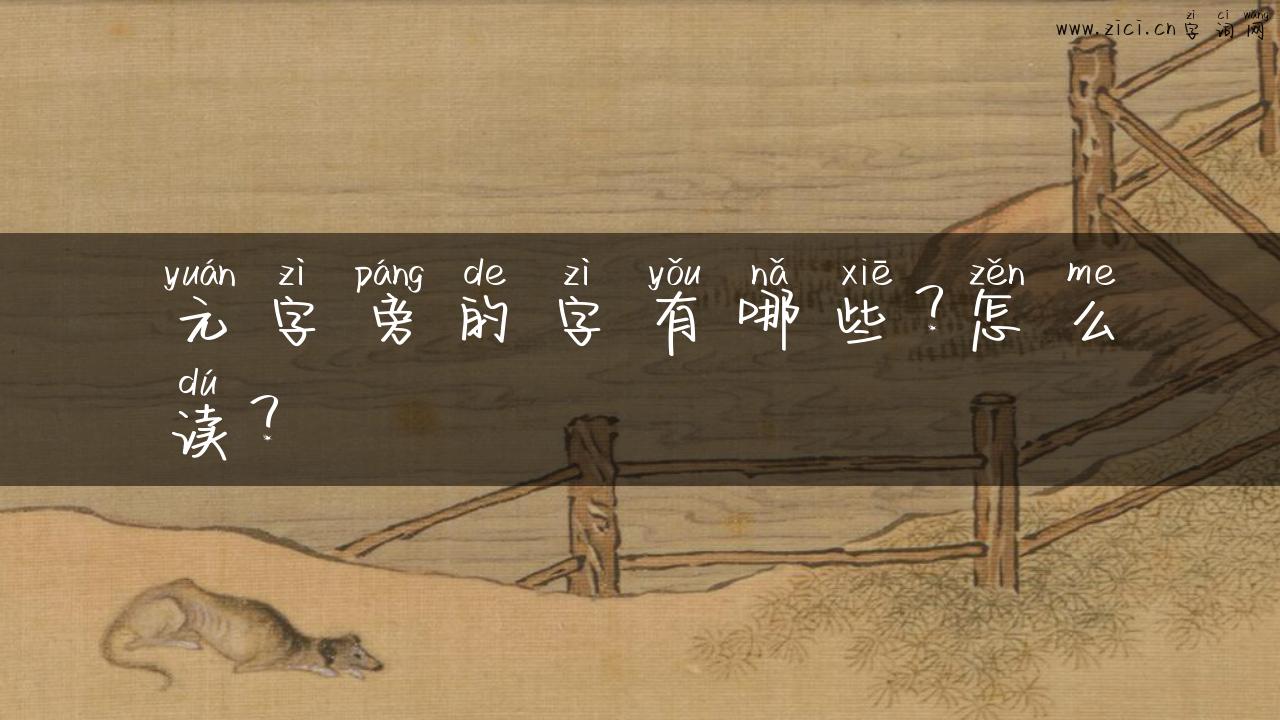 zì cí wǎng
www.zici.cn 字词网
yuán zì páng de zì yǒu nǎ xiē zěn me
元字旁的字有哪些?怎么
dú
读?